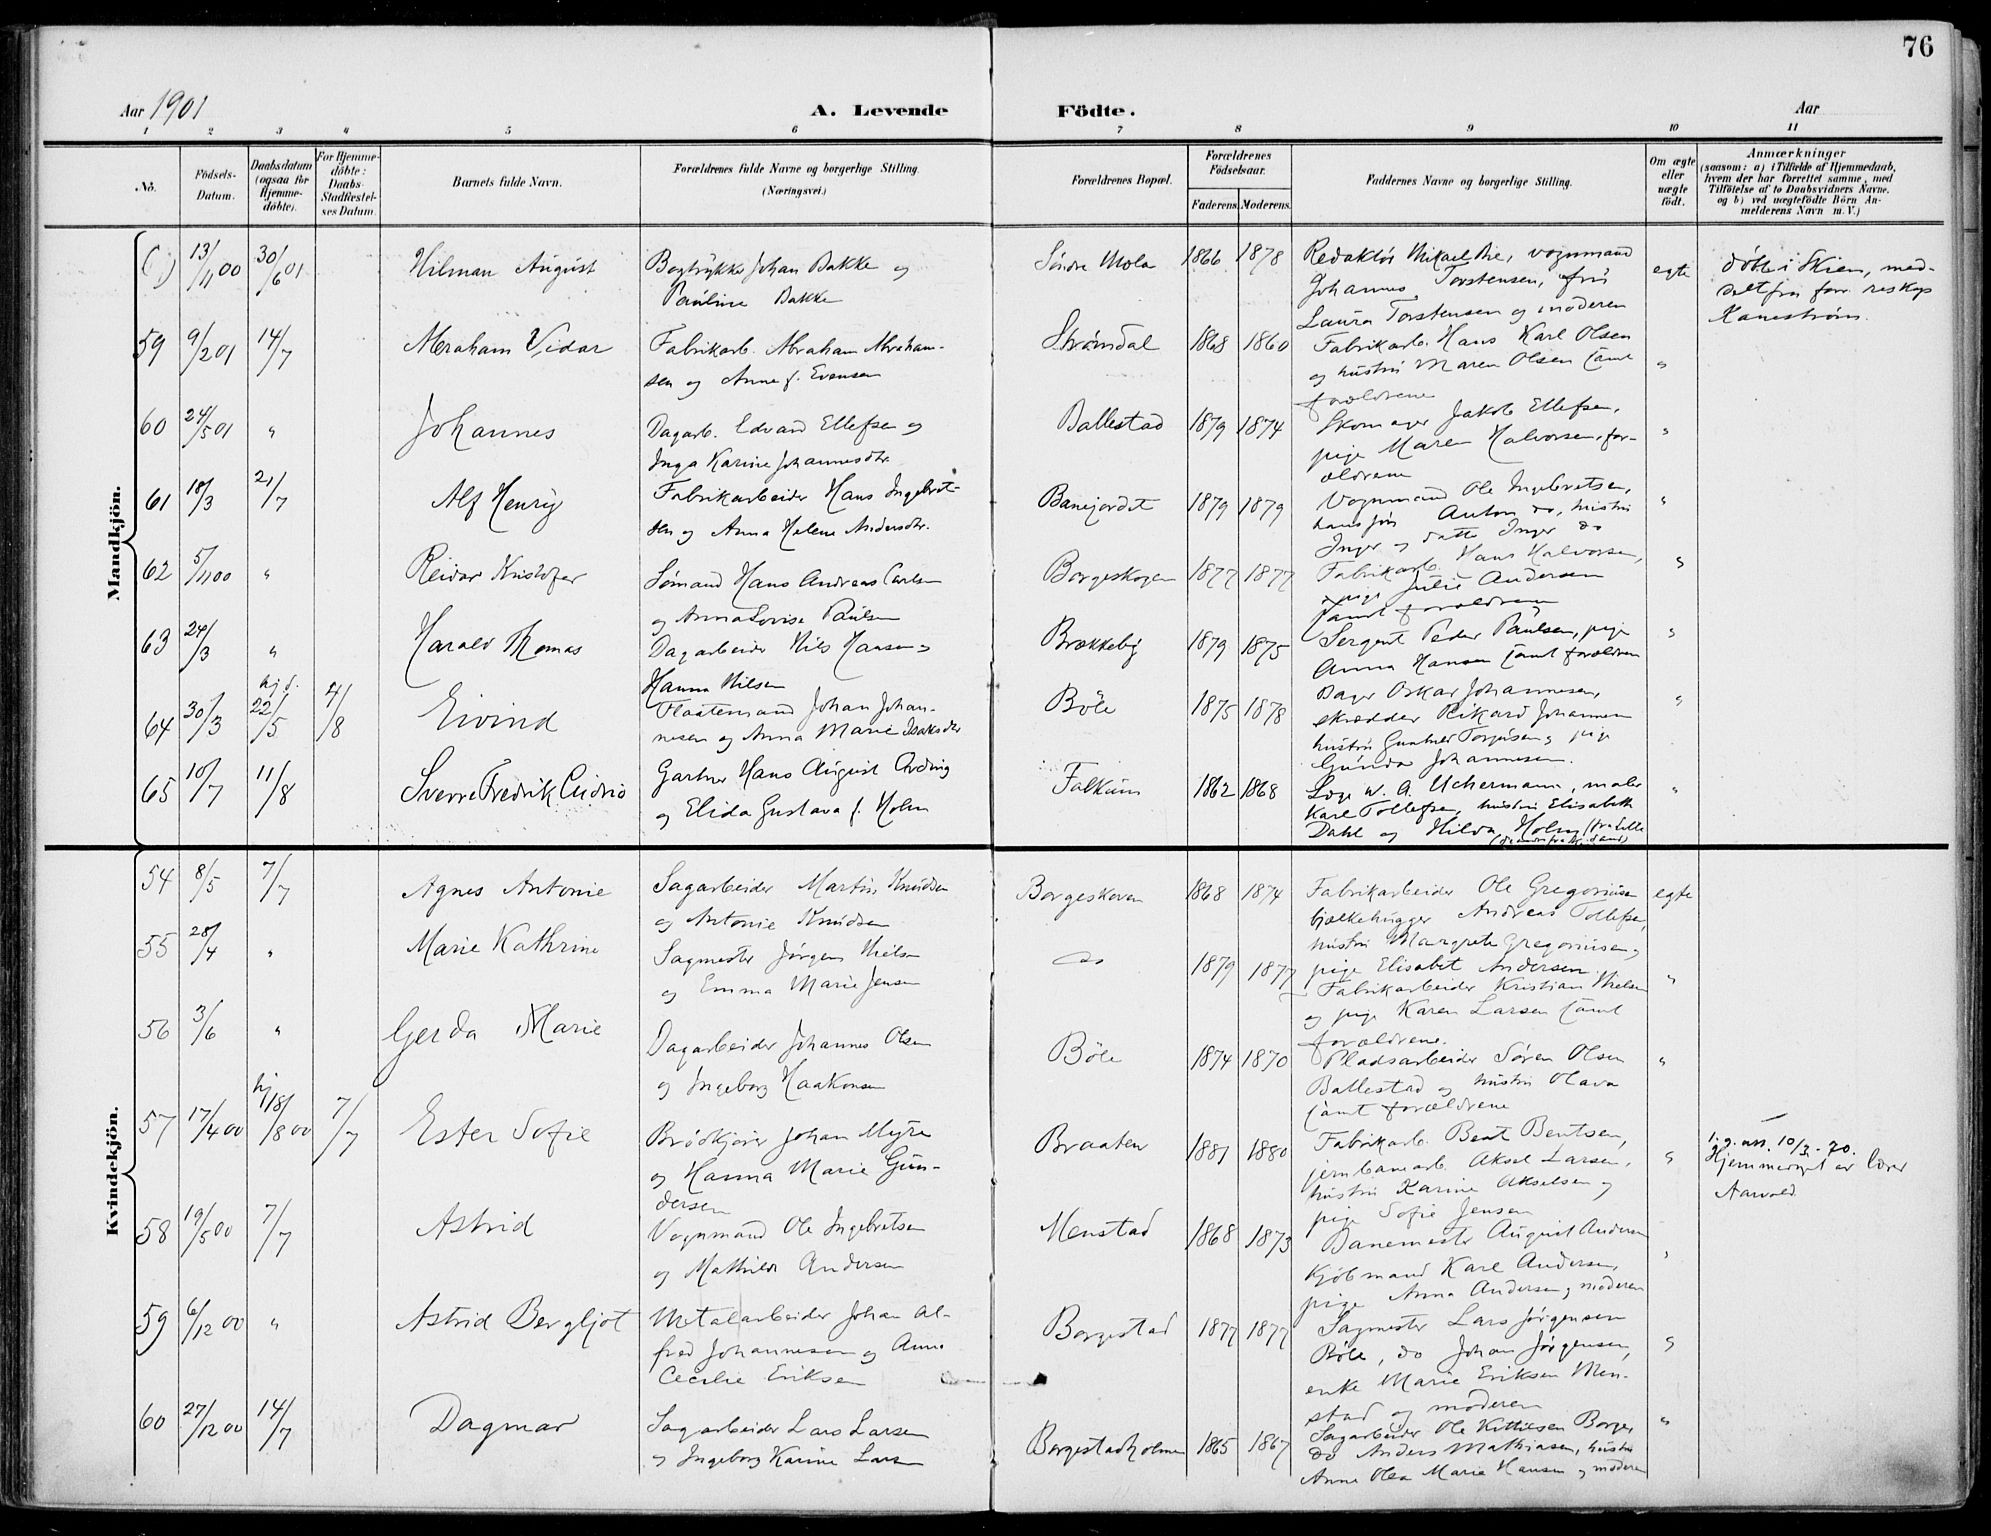 76
Aar 1901
A. Levende Födte.
Aar
1 2 3 4 5 6 7 8 9 10 11
No.
Födsels-Datum.
Daabsdatum (ogsaa for Hjemme-döbte).
For Hjemme-döbte: Daabs-Stadfæstel-ses Datum.
Barnets fulde Navn.
Forældrenes fulde Navne og borgerlige Stilling. (Næringsvei.)
Forældrenes Bopæl.
Forældrenes Födselsaar.
Faderens. Moderens.
Faddernes Navne og borgerlige Stilling.
Om ægte eller uægte födt.
Anmærkninger
(saasom: a) i Tilfælde af Hjemmedaab,
hvem der har forrettet samme, med
Tilföielse af to Daabsvidners Navne.
og b) ved uægtefödte Börn An-
melderens Navn m. V.)
Mandkjön.
13/11 00 30/6 01 Hilman August
Bogtrykker Johan Bakke og
Pauline Bakke
Søndre Mæla 1866 1878
Redaktør Mikael Bie, vognmand
Johannes Torstensen, fru
Laura Torstensen og moderen
egte
døbt i Skien, med-
delt fra for. reskap
Kanestrøm.
59 9/2 01 14/7 Abraham Vidar
Fabrikarb. Abraham Abraham-
sen og Anne f. Evensen
Strømdal 1868 1860
Fabrikarb. Hans Karl Olsen
og hustru Maren Olsen samt
forældrene
"
60 24/5 01 " Johannes
Dagarb. Edvard Ellefsen og
Inga Karine Johannesdtr.
Ballestad 1879 1874
Skomager Jakob Ellefsen,
pige Maren Halvorsen, for-
ældrene
"
61 18/3 21/7 Alf Henrig
Fabrikarbeider Hans Ingebret-
sen og Anna Helene Andersdtr.
Banejordet 1879 1879
Vognmand Ole Ingebretsen,
hans søn Anton do, hustru
Inger og datter Inger do
"
62 5/11 00 " Reidar Kristofer
Sømand Hans Andreas Carlsen
og Anna Lovise Paulsen
Borgeskogen 1877 1877
Fabrikarb. Hans Halvorsen,
pige Julie Andersen
samt forældrene
"
63 24/3 " Harald Thomas
Dagarbeider Nils Hansen og
Hanna Nilsen
Brækkeby 1879 1875
Sergent Peder Paulsen, pige
Anna Hansen samt forældren
"
64 30/3 hj.d. 22/5 4/8 Eivind
Flaatemand Johan Johan-
nesen og Anna Marie Isaksdtr
Böle 1875 1878
Bager Oskar Johannesen,
skrædder Rikard Johannesen
hustru Gunhild Torjusen og pige
Gunda Johannesen.
"
65 10/7 11/8 Sverre Fredrik
Gartner Hans August Arding
og Elida Gustava f. Holm
Falkum 1862 1868
Læge W. A. Uchermann, maler
Karl Tollefsen, hustru Elisabeth
Dahl og Hilda Holm
"
Kvindekjön.
54 8/5 7/7 Agnes Antonie
Sagarbeider Martin Knudsen
og Antonie Knudsen
Borgeskoven 1868 1874
Fabrikarbeider Ole Gregoriusen
bjelkehugger Andreas Tollefsen,
hustru Margrete Gregoriusen og
pige Elisabet Andersen
egte
55 28/4 " Marie Kathrine
Sagmester Jørgen Nielsen
og Emma Marie Jensen
do 1879 1877
Fabrikarbeider Kristian Nielsen
og pige Karen Larsen samt
forældrene.
"
56 3/6 " Gerda Marie
Dagarbeider Johannes Olsen
og Ingeborg Haakonsen
Böle 1874 1870
Pladsarbeider Søren Olsen
Ballestad og hustru Olava
samt forældrene
"
57 17/4 00 hj 18/8 00 7/7 Ester Sofie
Brödkjører Johan Myre
og Hanna Marie Gun-
dersen
Braaten 1881 1880
Fabrikarb. Bent Bentsen,
jernbanearb. Aksel Larsen,
hustru Karine Akselsen og
pige Sofie Jensen
"
10/3-70.
Hjemmedøpt av lærer
Aarvold
58 19/5 00 7/7 Astrid
Vognmand Ole Ingebretsen
og Mathilde Andersen
Menstad 1868 1873
Banemester August Andersen
kjöbmand Karl Andersen,
pige Anna Andersen og moderen
"
59 6/12 00 " Astrid Bergljot
Metalarbeider Johan Al-
fred Johannesen og Anne
Cecilie Eriksen
Borgestad 1877 1877
Sagmester Lars Jørgensen
Böle, do Johan Jørgensen,
enke Marie Eriksen Men-
stad og moderen
"
60 27/12 00 14/7 Dagmar
Sagarbeider Lars Larsen
og Ingeborg Karine Larsen
Borgestadholmen 1865 1867
Sagarbeider Ole Kittilsen Borge,
do Anders Mathiasen, hustru
Anne Olea Marie Hansen og moderen
"